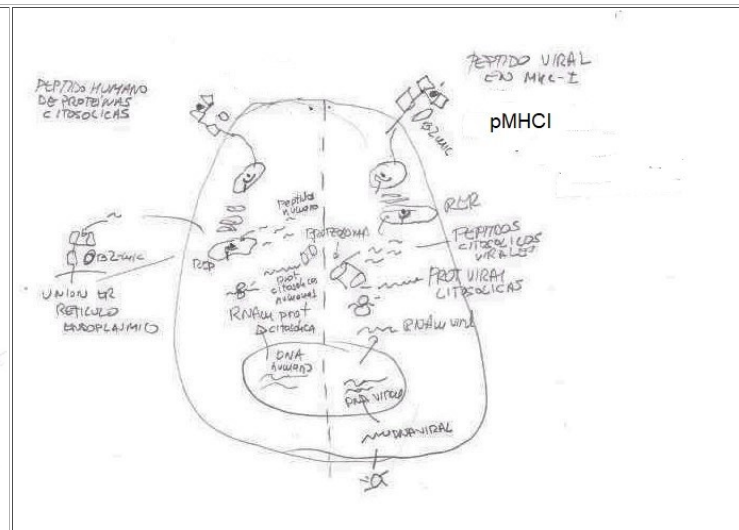 PEPTIDO HUMANO
DE PROTEÍNAS
CITOSOLICAS
PEPTIDO VIRAL
EN MHC-I
pMHCI
B2mic
RER
Peptido
humano
PROTEOSOMA
PEPTIDOS
CITOSOLICOS
VIRALES
B2mic
UNION ER
RETICULO
ENDOPLASMICO
prot
citosolica
PROT VIRAL
CITOSOLICAS
RNAm prot
citosólica
RNAm viral
DNA
humano
DNA VIRAL
DNA VIRAL